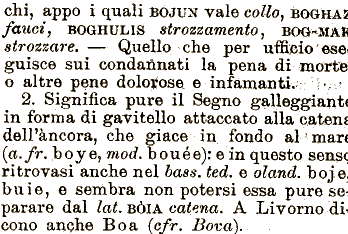 chi, appo i quali BOJUN vale collo, BOGHAZ
fauci, BOGHULIS strozzamento, BOG-MAK
strozzare. — Quello che per ufficio ese-
guisce sui condannati la pena di morte
o altre pene dolorose e infamanti.
2. Significa pure il Segno galleggiante
in forma di gavitello attaccato alla catena
dell'àncora, che giace in fondo al mare
(a. fr. boye, mod. bouée): e in questo senso
ritrovasi anche nel bass. ted. e oland. boje,
buie, e sembra non potersi essa pure se-
parare dal lat. BÒIA catena. A Livorno di-
cono anche Boa (cfr. Bova).